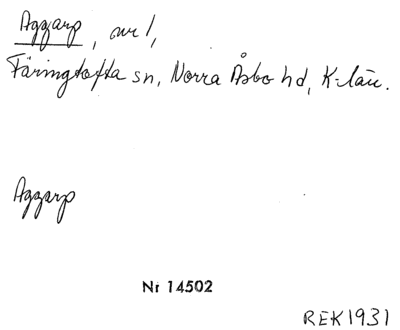 Aggarp, nr 1,
Färingtofta sn, Norra Åsbo hd, K-län.
Aggarp
Nr 14502
REK 1931